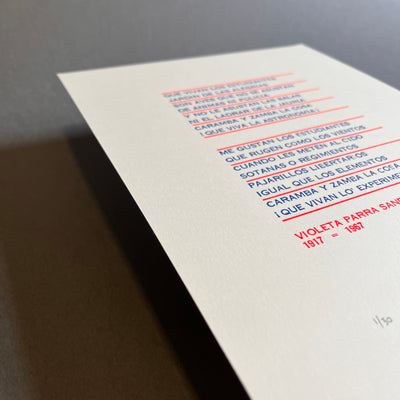 QUE VIVAN LOS ESTUDIANTES
JARDIN DE LAS ALEGRIAS
SON AVES QUE NO SE ASUSTAN
DE ANIMAL NI POLICIA
Y NO LE ASUSTAN LAS BALAS
NI EL LADRAR DE LA JAURIA
CARAMBA Y ZAMBA LA COSA
¡QUE VIVA LA ASTRONOMIA!
ME GUSTAN LOS ESTUDIANTES
QUE RUGEN COMO LOS VIENTOS
CUANDO LES METEN AL OIDO
SOTANAS O REGIMIENTOS
PAJARILLOS LIBERTARIOS
IGUAL QUE LOS ELEMENTOS
CARAMBA Y ZAMBA LA COSA
¡QUE VIVAN LO' EXPERIME
VIOLETA PARRA SAN
1917 = 1967
1/30